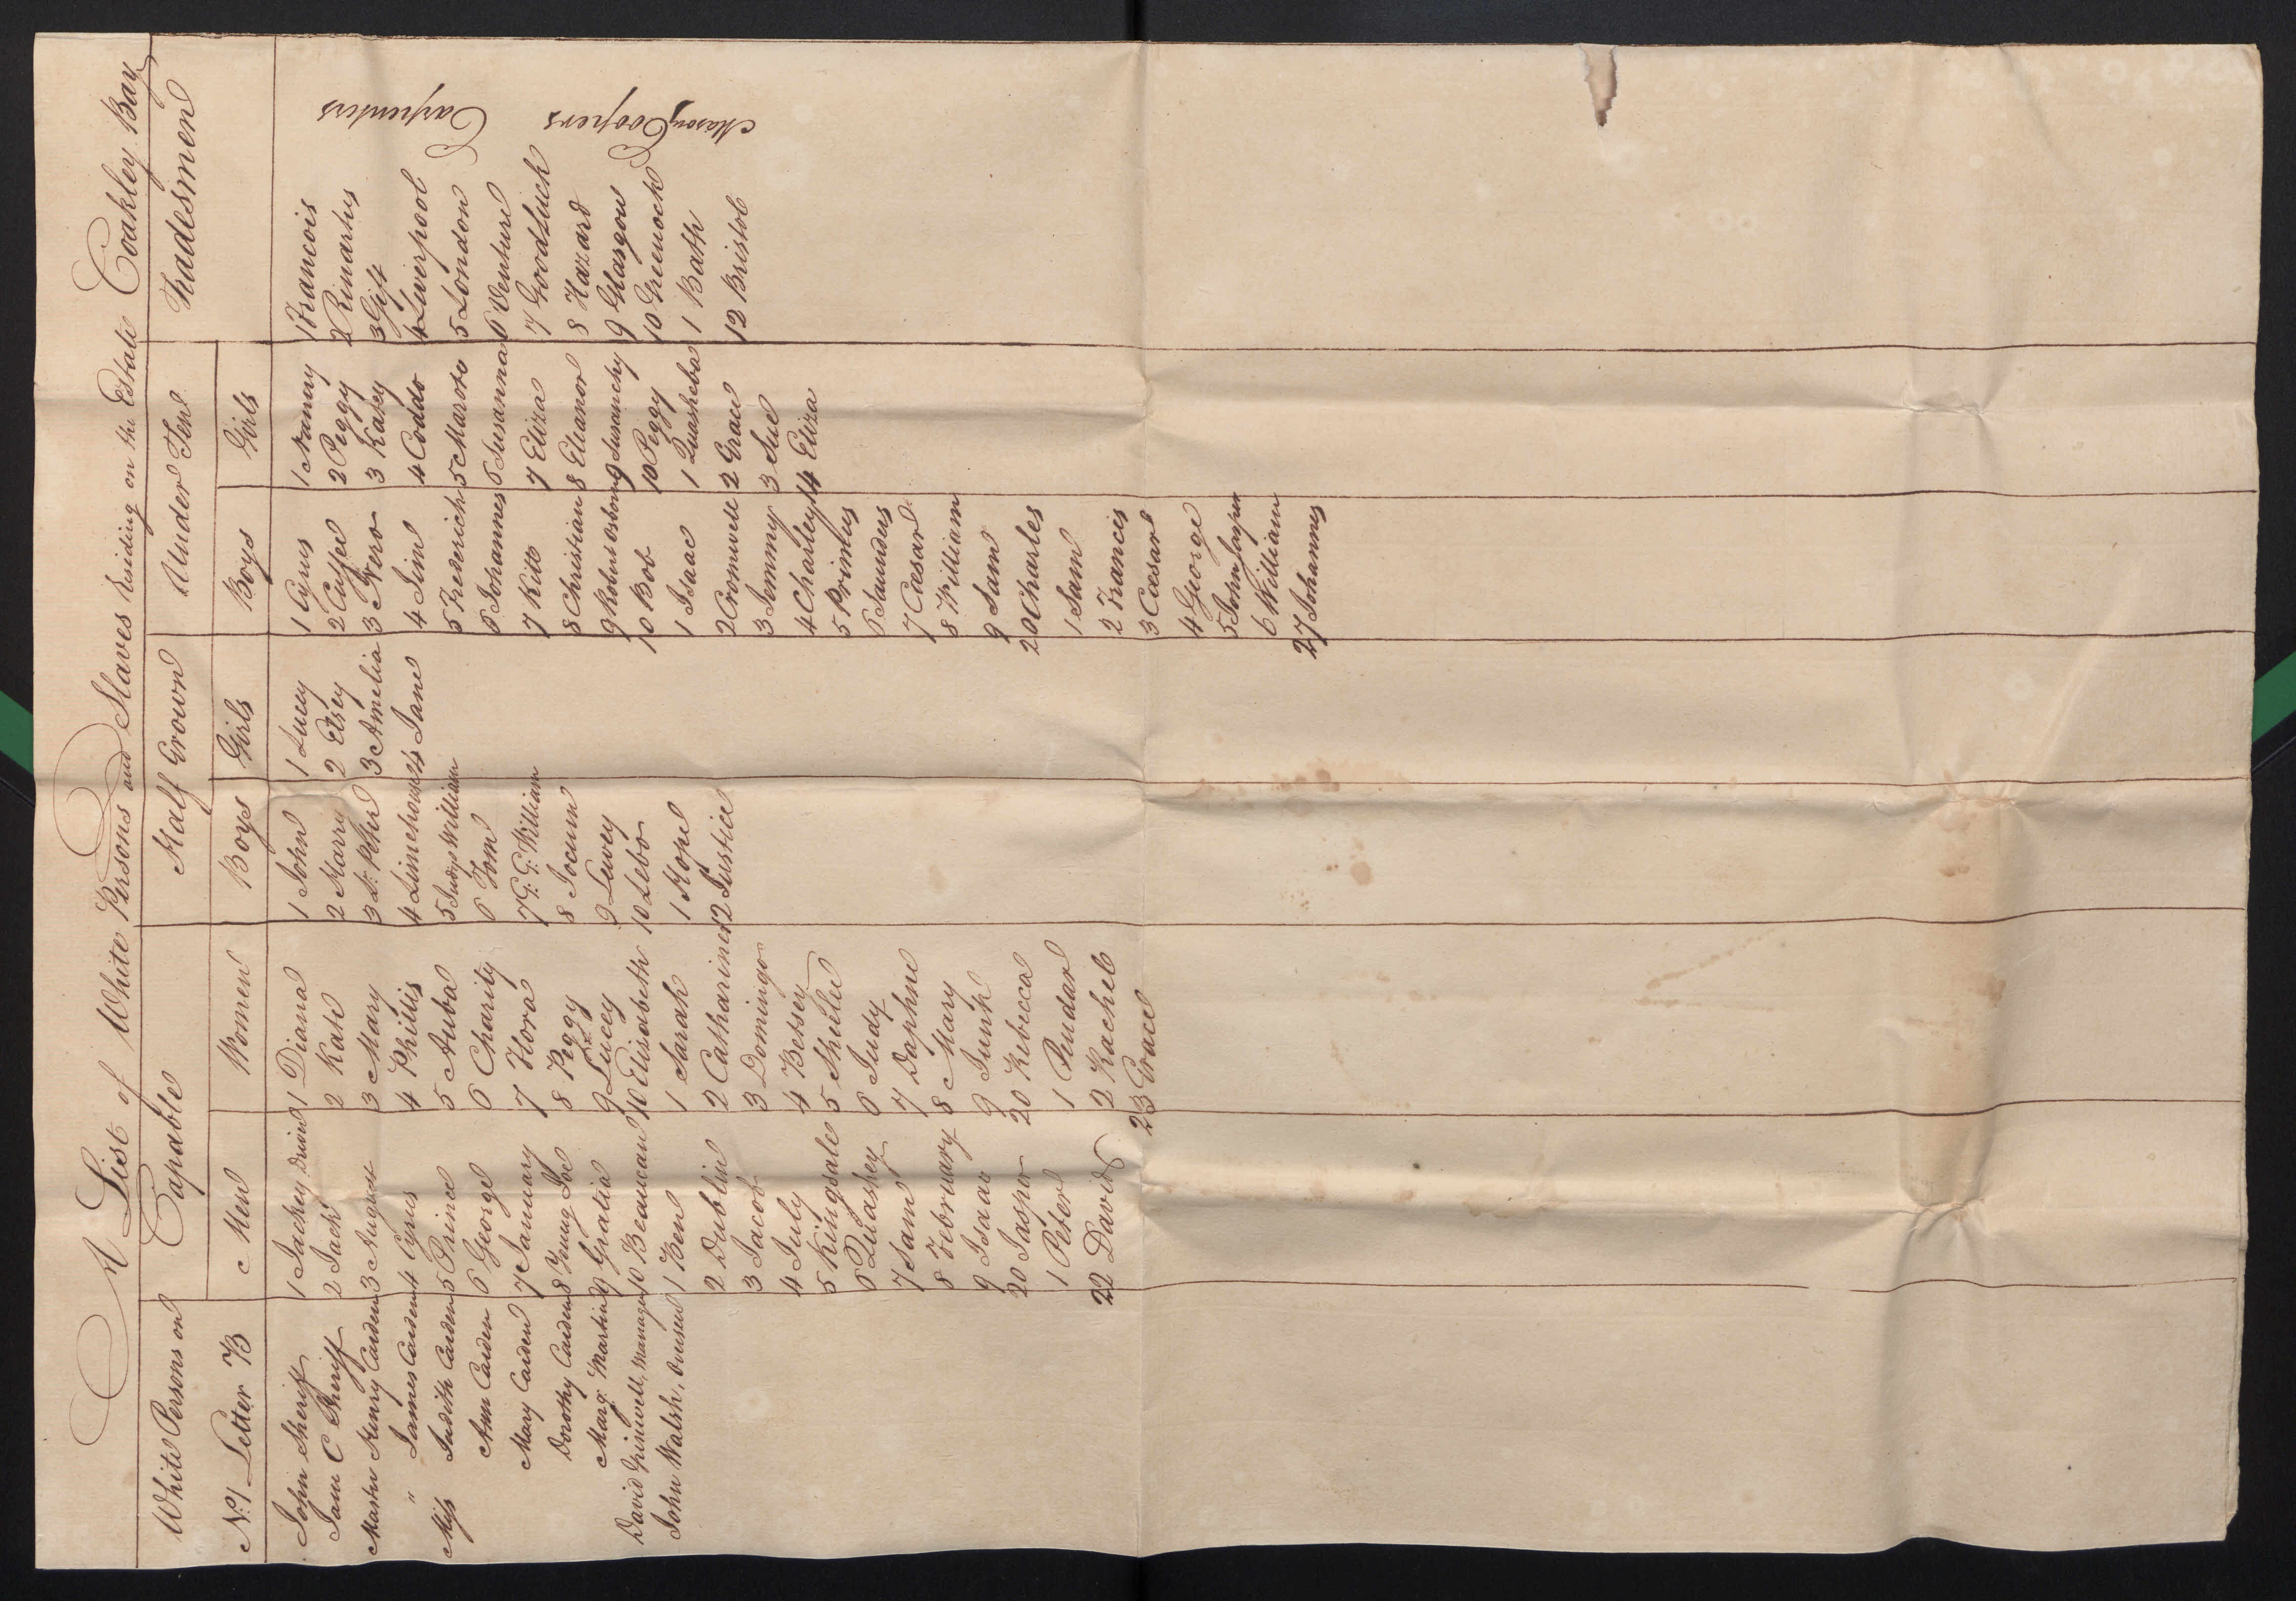 A List of White Persons and Slaves Residing on the Estate Coakley Bay
White Persons on Capable Half Grown Under Ten Tradesmen
No. 1 Letter B Men Women Boys Girls Boys Girls
John Sheriff 1 Jackey Driver 1 Diana 1 John 1 Lucey 1 Cyrus 1 Nanny 1 Francois
Jane C Sheriff 2 Jack 2 Kate 2 Harry 2 Elsey 2 Cuffee 2 Peggy 2 Rinartus
Master Henry Carden 3 August 3 Mary 3 St. Peter 3 Amelia 3 Nero 3 Katey 3 Gift
" James Carden 4 Cyrus 4 Phillis 4 Limehouse 4 Jane 4 Jim 4 Coddo 4 Liverpool
Miss Judith Carden 5 Prince 5 Auba 5 Judys William 5 Frederich 5 Maroto 5 London
Ann Carden 6 George 6 Charity 6 Tom 6 Johannes 6 Susanna 6 Venture
Mary Carden 7 January 7 Flora 7 G: G: William 7 Kitt 7 Eliza 7 GoodLuck
Dorothy Carden 8 Young Joe 8 Peggy 8 Jocum 8 Christian 8 Eleanor 8 Hazard
Marg: Martin 9 Gratia 9 Lucey 9 Lewey 9 Robert Osborn 9 Susanchy 9 Glasgow
David Grinwell, Manager 10 Beaucan 10 Elizabeth 10 Lebo 10 Bob 10 Peggy 10 Greenock
John Walsh, Overseer 1 Ben 1 Sarah 1 Hope 1 Isaac 1 Quasheba 1 Bath
2 Dublin 2 Catharine 12 Justice 2 Cromwell 2 Grace 12 Bristol
3 Jacob 3 Domingo 3 Jemmy 3 Sue
4 July 4 Betsey 4 Charley 14 Eliza
5 Kingsale 5 Sheelee 5 Primus
6 Quashey 6 Judy 6 Saunders
7 Sam 7 Daphne 7 Cæsar
8 February 8 Mary 8 William
9 Isaac 9 Junk 9 Sam
20 Jasper 20 Rebecca 20 Charles
1 Peter 1 Pendar 1 Sam
22 David 2 Rachel 2 Francis
23 Grace 3 Cæsar
4 George
5 John Jasper
6 William
27 Johannes
Carpenters
Coopers
Mason